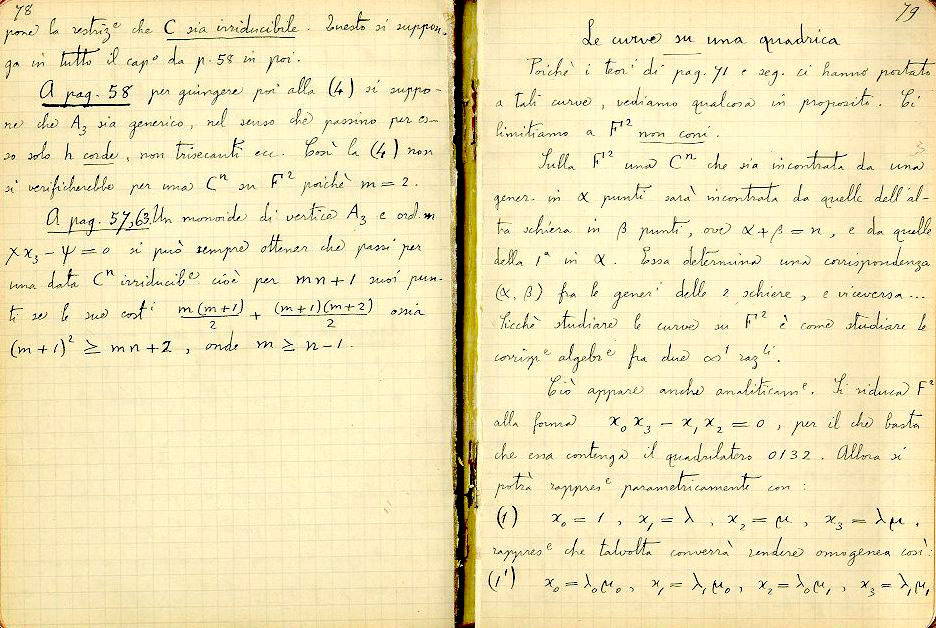 78
pone la restrizᵉ che C sia irriducibile. Questo si suppon-
ga in tutto il capᵒ da p. 58 in poi.
A pag. 58 per giungere poi alla (4) si suppo-
ne che A₃ sia generico, nel senso che passino per es-
so solo h corde, non trisecanti ecc. Così la (4) non
si verificherebbe per una Cⁿ su F² poichè m = 2.
A pag. 57,63. Un monoide di vertice A₃ e ord. m
χx₃ − ψ = 0 si può sempre ottener che passi per
una data Cⁿ irriducibᵉ cioè per mn+1 suoi pun-
ti se le sue costⁱ m(m+1)/2 + (m+1)(m+2)/2 ossia
(m+1)² ≥ mn+2, onde m ≥ n−1.
79
Le curve su una quadrica
Poichè i teorⁱ di pag. 71 e seg. ci hanno portato
a tali curve, vediamo qualcosa in proposito. Ci
limitiamo a F² non coni.
3
Sulla F² una Cⁿ che sia incontrata da una
gener. in α punti sarà incontrata da quelle dell'al-
tra schiera in β punti, ove α+β = n, e da quelle
della 1ᵃ in α. Essa determina una corrispondenza
(α, β) fra le generⁱ delle 2 schiere, e viceversa...
Sicchè studiare le curve su F² è come studiare le
corrispᵉ algebrᵉ fra due ∞¹ razˡⁱ.
Ciò appare anche analiticamᵉ. Si riduca F²
alla forma x₀x₃ − x₁x₂ = 0, per il che basta
che essa contenga il quadrilatero 0132. Allora si
potrà rappresᵉ parametricamente con:
(1) x₀ = 1, x₁ = λ, x₂ = μ, x₃ = λμ,
rappresᵉ che talvolta converrà rendere omogenea così:
(1') x₀ = λ₀μ₀, x₁ = λ₁μ₀, x₂ = λ₀μ₁, x₃ = λ₁μ₁